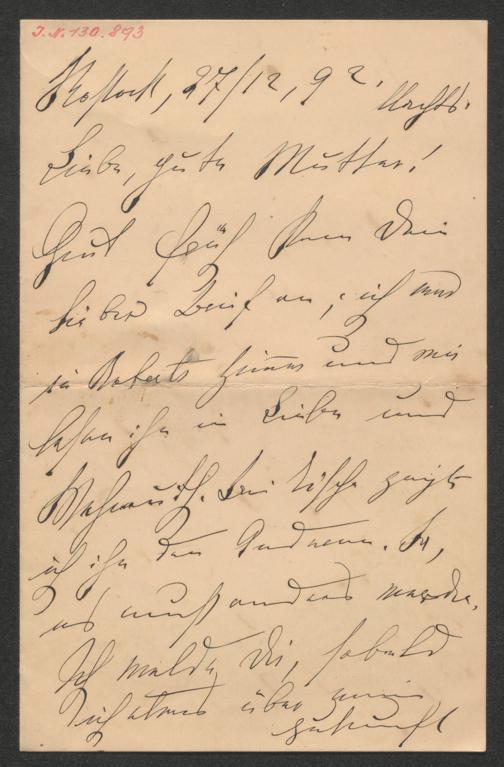 I.N. 130.893
Rostock, 27/12, 92. Nachts.
Liebe, gute Mutter!
Heut früh kam Dein
lieber Brief an; ich war
in Roberts Zimmer und wir
lasen ihn in Liebe und
Wehmuth. Bei Tische zeigte
ich ihn den Anderen. Ja,
es muß anders werden.
Ich melde Dir, sobald
ich etwas über meine
Zukunft